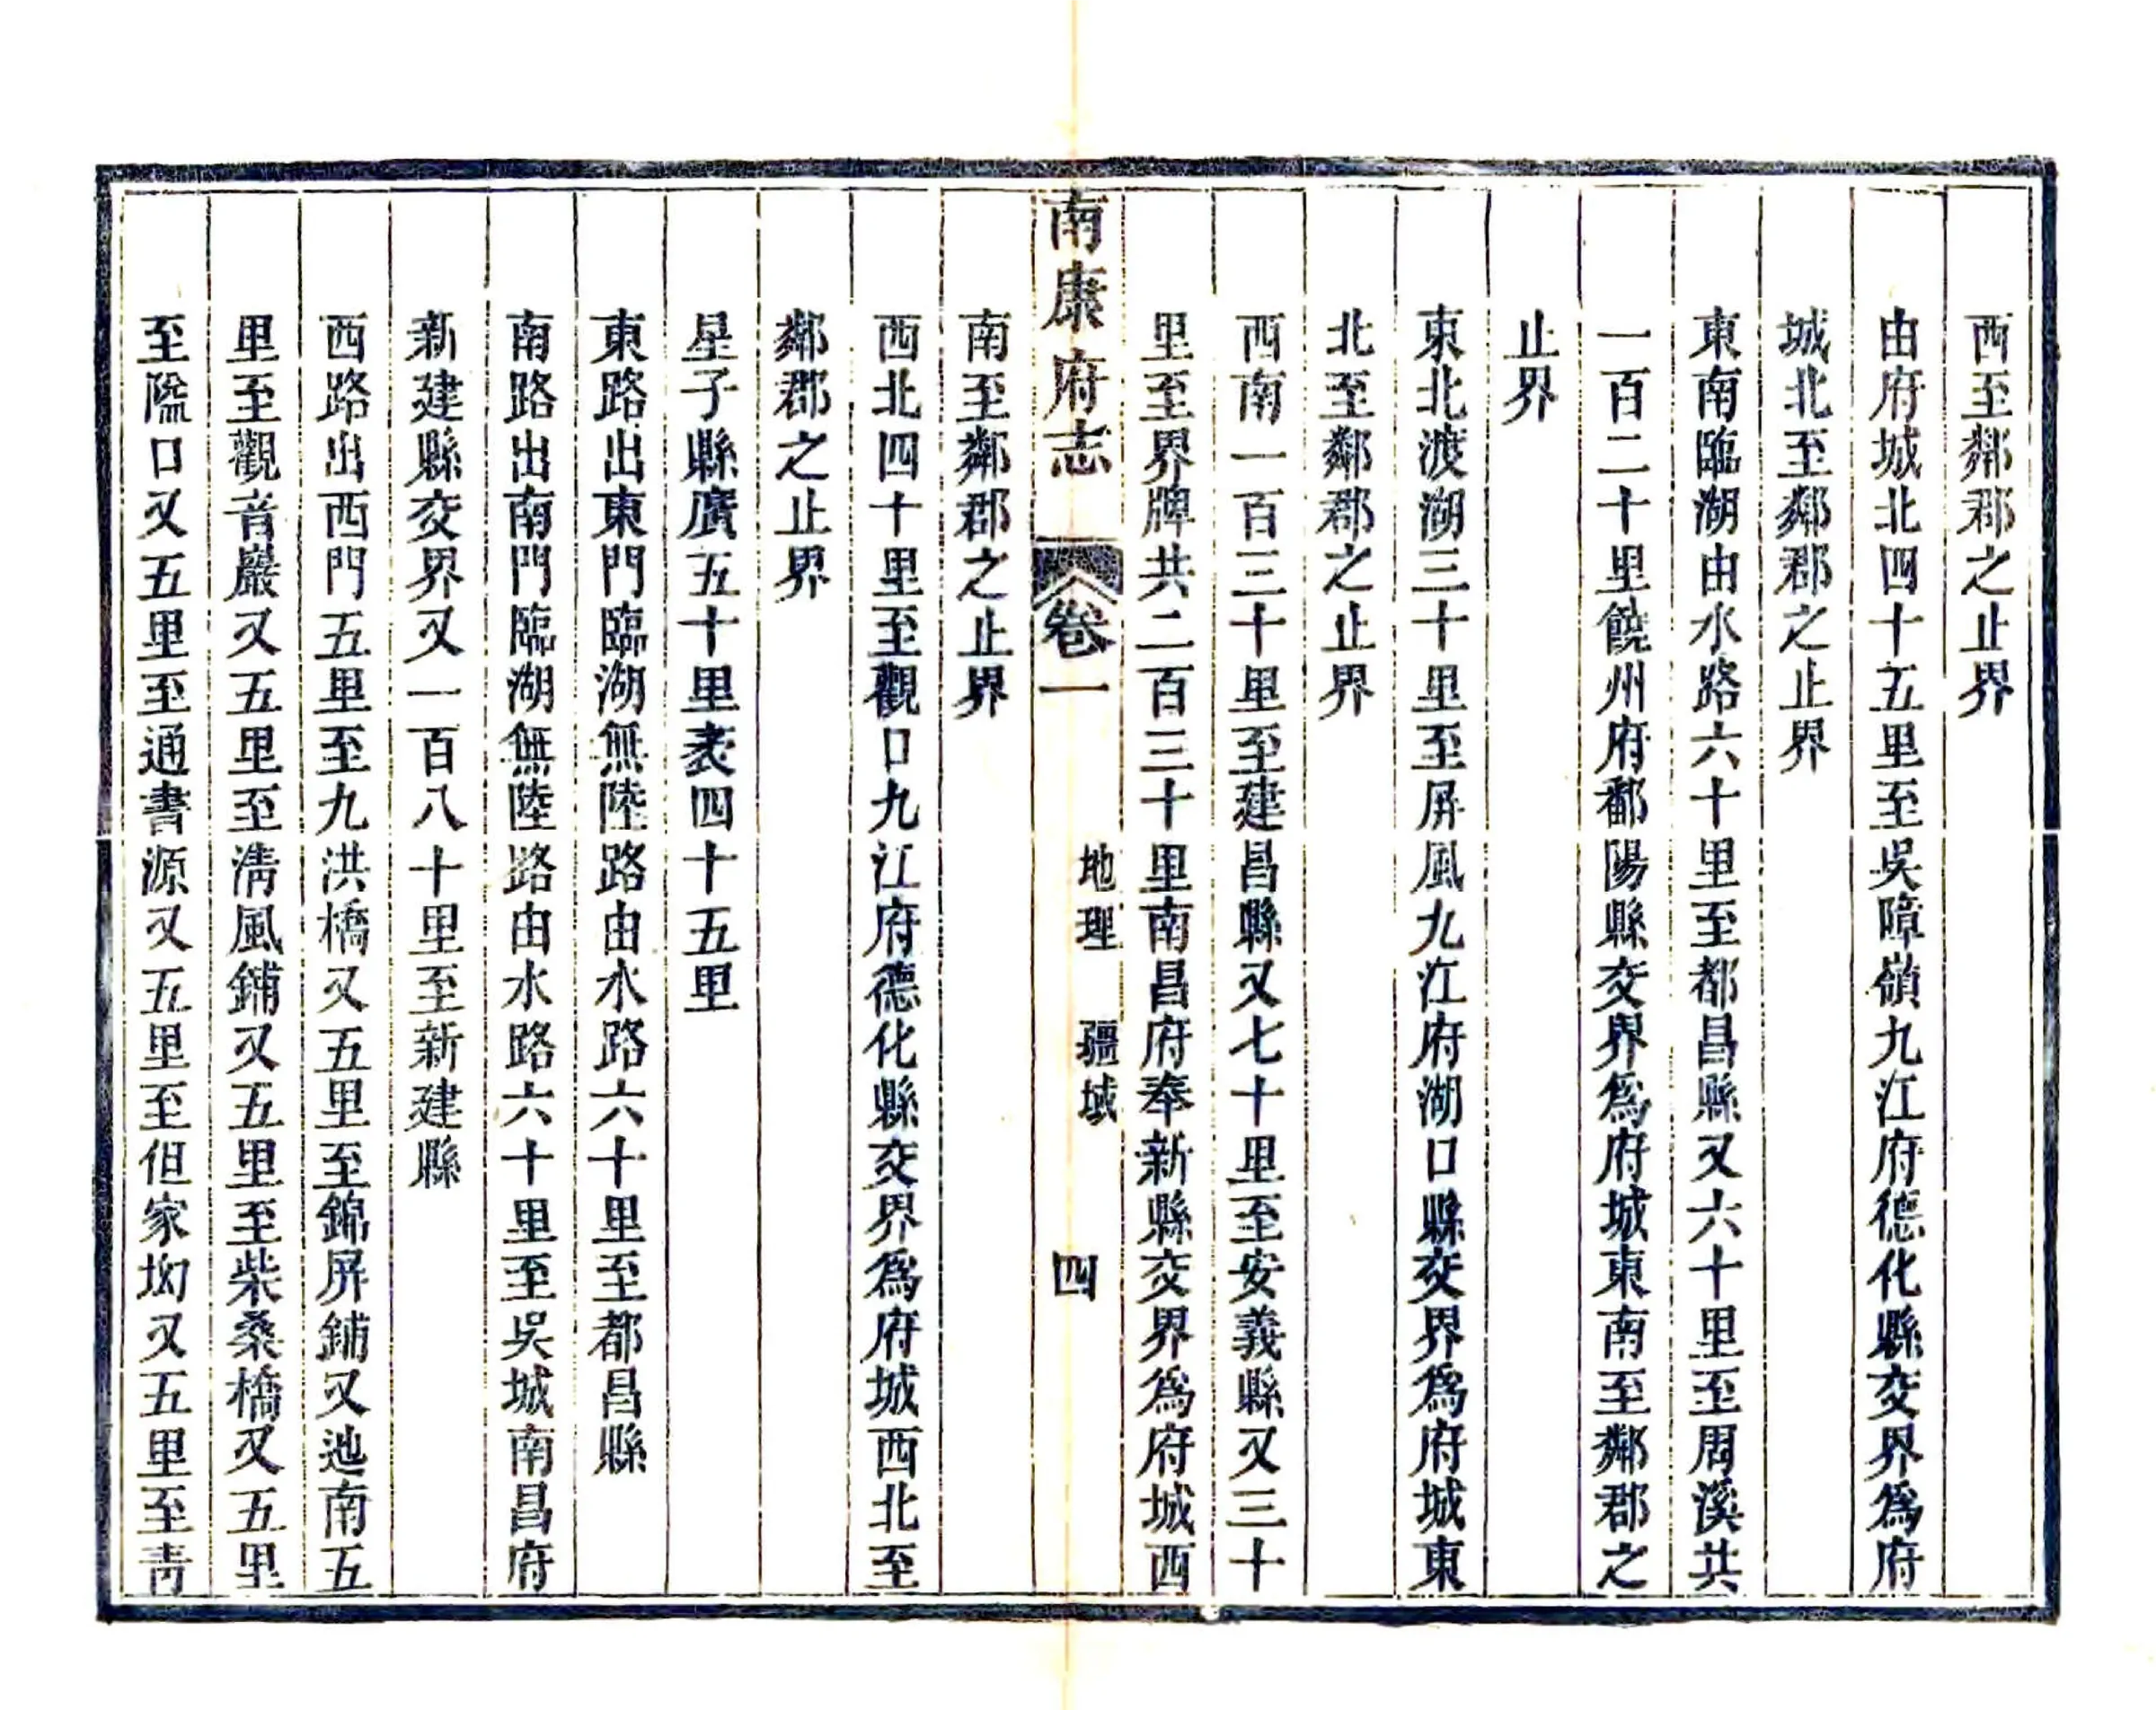 西至鄰郡之止界
由府城北四十五里至吳障嶺九江府德化縣交界爲府
城北至鄰郡之止界
東南臨湖由水路六十里至都昌縣又六十里至周溪共
一百二十里饒州府鄱陽縣交界爲府城東南至鄰郡之
止界
東北渡湖三十里至屏風九江府湖口縣交界爲府城東
北至鄰郡之止界
西南一百三十里至建昌縣又七十里至安義縣又三十
里至界牌共二百三十里南昌府奉新縣交界爲府城西
南康府志
卷一
地理 疆域
四
南至鄰郡之止界
西北四十里至觀口九江府德化縣交界爲府城西北至
鄰郡之止界
星子縣廣五十里袤四十五里
東路出東門臨湖無陸路由水路六十里至都昌縣
南路出南門臨湖無陸路由水路六十里至吳城南昌府
新建縣交界又一百八十里至新建縣
西路出西門五里至九洪橋又五里至錦屏鋪又迆南五
里至觀音巖又五里至清風鋪又五里至柴桑橋又五里
至隘口又五里至通書源又五里至但家坳又五里至靑